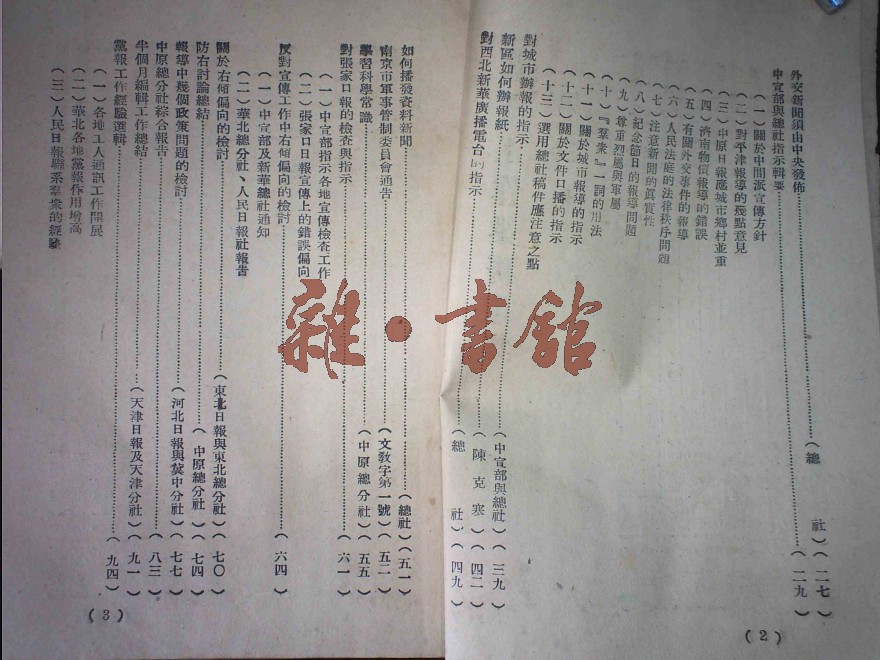 外交新聞須由中央發佈……（總　社）（二七）
中宣部與總社指示輯要……（二九）
（一）關於中間派宣傳方針
（二）對平津報導的幾點意見
（三）中原日報應城市鄉村並重
（四）濟南物價報導的錯誤
（五）有關外交事件的報導
（六）人民法庭的法律秩序問題
（七）注意新聞的真實性
（八）紀念節日的報導問題
（九）尊重烈屬與軍屬
（十）『羣衆』一詞的用法
（十一）關於城市報導的指示
（十二）關於文件口播的指示
（十三）選用總社稿件應注意之點
對城市辦報的指示……（中宣部與總社）（三九）
新區如何辦報紙……（陳克寒）（四二）
對西北新華廣播電台的指示……（總　社）（四九）
（2）
如何播發資料新聞……（總社）（五一）
南京市軍事管制委員會通告……（文敎字第一號）（五二）
學習科學常識……（中原總分社）（五五）
對張家口報的檢查與指示……（六一）
（一）中宣部指示各地宣傳檢查工作
（二）張家口日報宣傳上的錯誤偏向
反對宣傳工作中右傾偏向的檢討……（六四）
（一）中宣部及新華總社通知
（二）華北總分社、人民日報社報告
關於右傾偏向的檢討……（東北日報與東北總分社）（七〇）
防右討論總結……（中原總分社）（七四）
報導中幾個政策問題的檢討……（河北日報與冀中分社）（七七）
中原總分社綜合報告……（八三）
半個月編輯工作總結……（天津日報及天津分社）（九一）
黨報工作經驗選輯……（九四）
（一）各地工人通訊工作開展
（二）華北各地黨報作用增高
（三）人民日報聯系羣衆的經驗
（3）
雜·書館